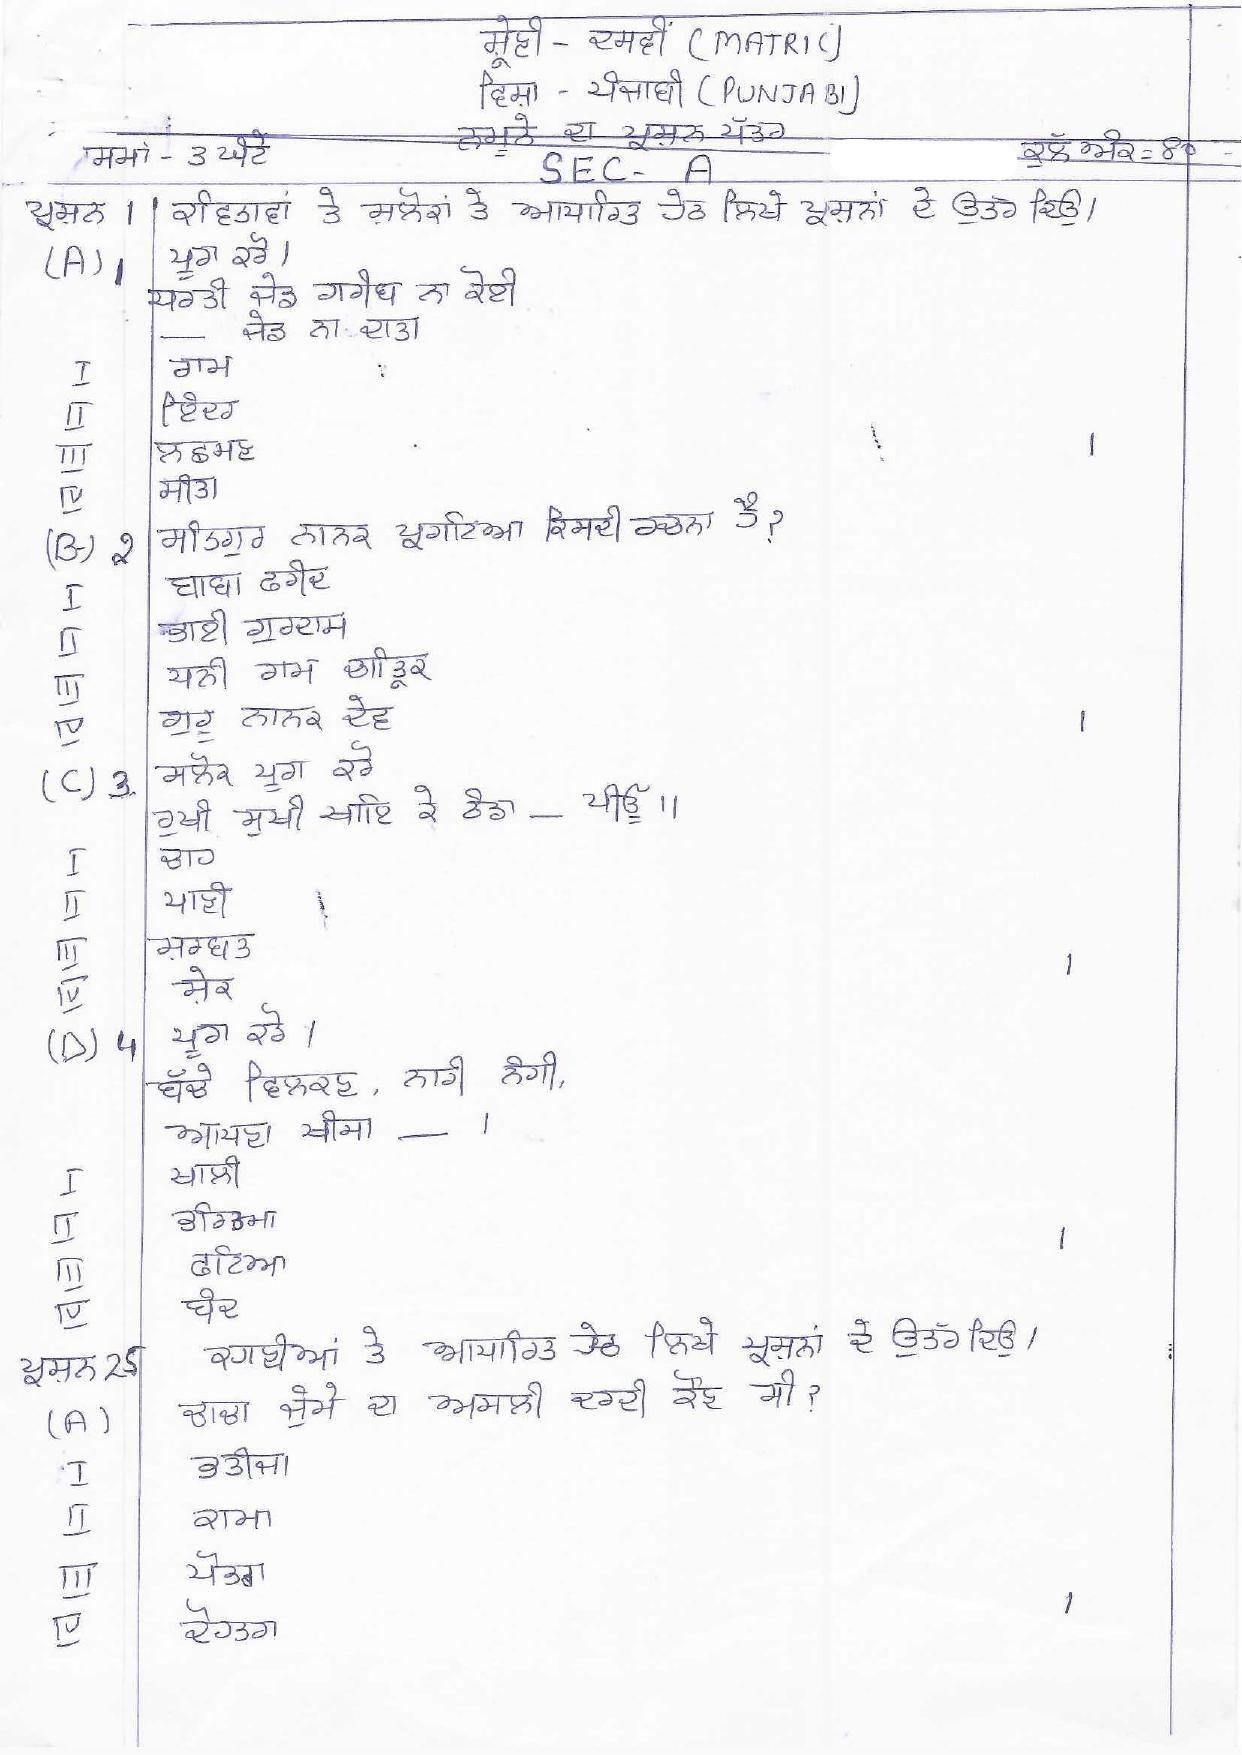 ਸ਼੍ਰੇਣੀ - ਦਸਵੀਂ (MATRIC)
ਵਿਸ਼ਾ - ਪੰਜਾਬੀ (PUNJABI)
ਨਮੂਨੇ ਦਾ ਪ੍ਰਸ਼ਨ ਪੱਤਰ
ਸਮਾਂ - 3 ਘੰਟੇ ਕੁੱਲ ਅੰਕ = 80
SEC- A
ਪ੍ਰਸ਼ਨ 1 ਕਵਿਤਾਵਾਂ ਤੇ ਸ਼ਲੋਕਾਂ ਤੇ ਆਧਾਰਿਤ ਹੇਠ ਲਿਖੇ ਪ੍ਰਸ਼ਨਾਂ ਦੇ ਉਤੱਰ ਦਿਉ।
(A) 1 ਪੂਰਾ ਕਰੋ।
ਧਰਤੀ ਜੇਡ ਗਰੀਬ ਨਾ ਕੋਈ
— ਜੇਡ ਨਾ ਦਾਤਾ
I ਰਾਮ
II ਇੰਦਰ
III ਲਛਮਣ 1
IV ਸੀਤਾ
(B) 2 ਸਤਿਗੁਰ ਨਾਨਕ ਪ੍ਰਗਟਿਆ ਕਿਸਦੀ ਰਚਨਾ ਹੈ?
I ਬਾਬਾ ਫਰੀਦ
II ਭਾਈ ਗੁਰਦਾਸ
III ਧਨੀ ਰਾਮ ਚਾਤ੍ਰਿਕ
IV ਗੁਰੂ ਨਾਨਕ ਦੇਵ 1
(C) 3. ਸਲੋਕ ਪੂਰਾ ਕਰੋ
ਰੁਖੀ ਸੁਖੀ ਖਾਇ ਕੇ ਠੰਡਾ — ਪੀਉ॥
I ਚਾਹ
II ਪਾਣੀ
III ਸ਼ਰਬਤ 1
IV ਸ਼ੇਕ
(D) 4 ਪੂਰਾ ਕਰੋ।
ਬੱਚੇ ਵਿਲਕਣ, ਨਾਰੀ ਨੰਗੀ,
ਆਪਣਾ ਖੀਸਾ — ।
I ਖਾਲੀ
II ਭਰਿਆ 1
III ਫਟਿਆ
IV ਬੰਦ
ਪ੍ਰਸ਼ਨ 2 ਕਹਾਣੀਆਂ ਤੇ ਆਧਾਰਿਤ ਹੇਠ ਲਿਖੇ ਪ੍ਰਸ਼ਨਾਂ ਦੇ ਉਤੱਰ ਦਿਉ।
(A) ਚਾਚਾ ਜੁੰਮੇ ਦਾ ਅਸਲੀ ਦਰਦੀ ਕੌਣ ਸੀ?
I ਭਤੀਜਾ
II ਕਾਮਾ
III ਪੋਤਰਾ
IV ਦੋਹਤਰਾ 1